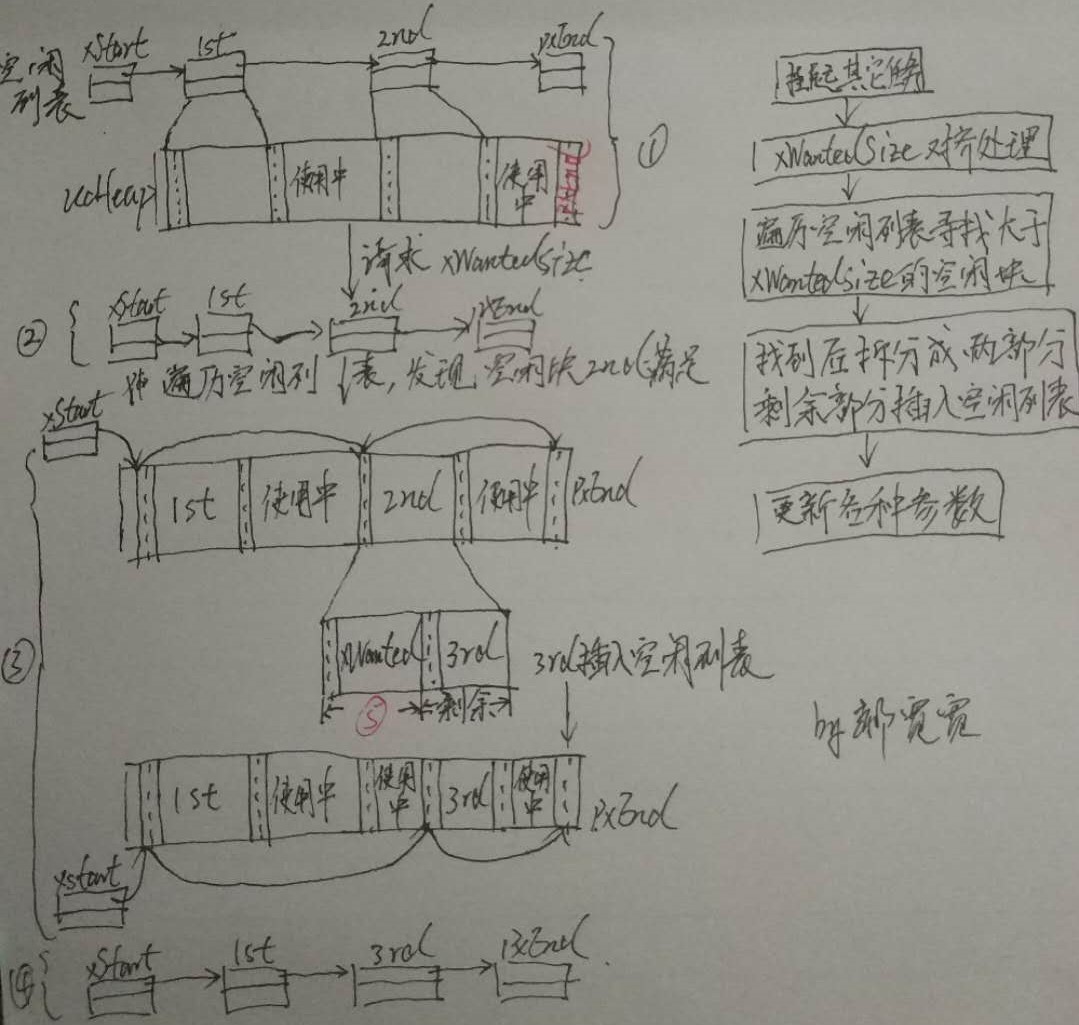 空闲
列表
xStart
1st
2nd
pxEnd
①
ucHeap
使用中
使用
中
pxEnd
请求 xWantedSize
②
xStart
1st
2nd
pxEnd
遍历空闲列表，发现空闲块2nd满足
③
xStart
1st
使用中
2nd
使用中
PxEnd
xWanted
3rd
⑤
剩余
3rd插入空闲列表
1st
使用中
使用
中
3rd
使用
中
PxEnd
xStart
④
xStart
1st
3rd
PxEnd
挂起其它任务
xWantedSize对齐处理
遍历空闲列表寻找大于
xWantedSize的空闲块
找到后拆分成两部分
剩余部分插入空闲列表
更新各种参数
by 郭宽宽